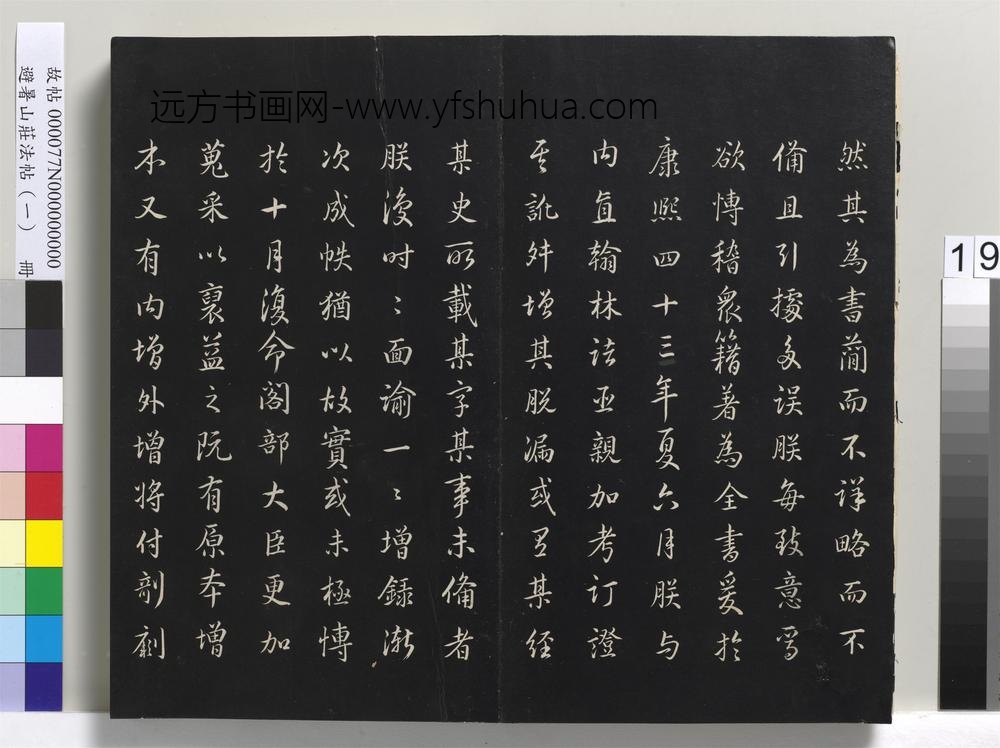 远方书画网-www.yfshuhua.com
然其為書蕳而不詳略而不
備且引據多误朕每致意焉
欲博稽衆籍著為全書爰於
康熙四十三年夏六月朕与
内直翰林諸臣親加考訂證
其訛舛增其脱漏或有某經
某史所載某字某事未備者
朕復时〻面諭一〻增録漸
次成帙猶以故實或未極博
於十月復命閣部大臣更加
蒐采以裒益之既有原本增
本又有内增外增將付剞劂
故帖 000077N000000000
避暑山莊法帖（一） 冊
19